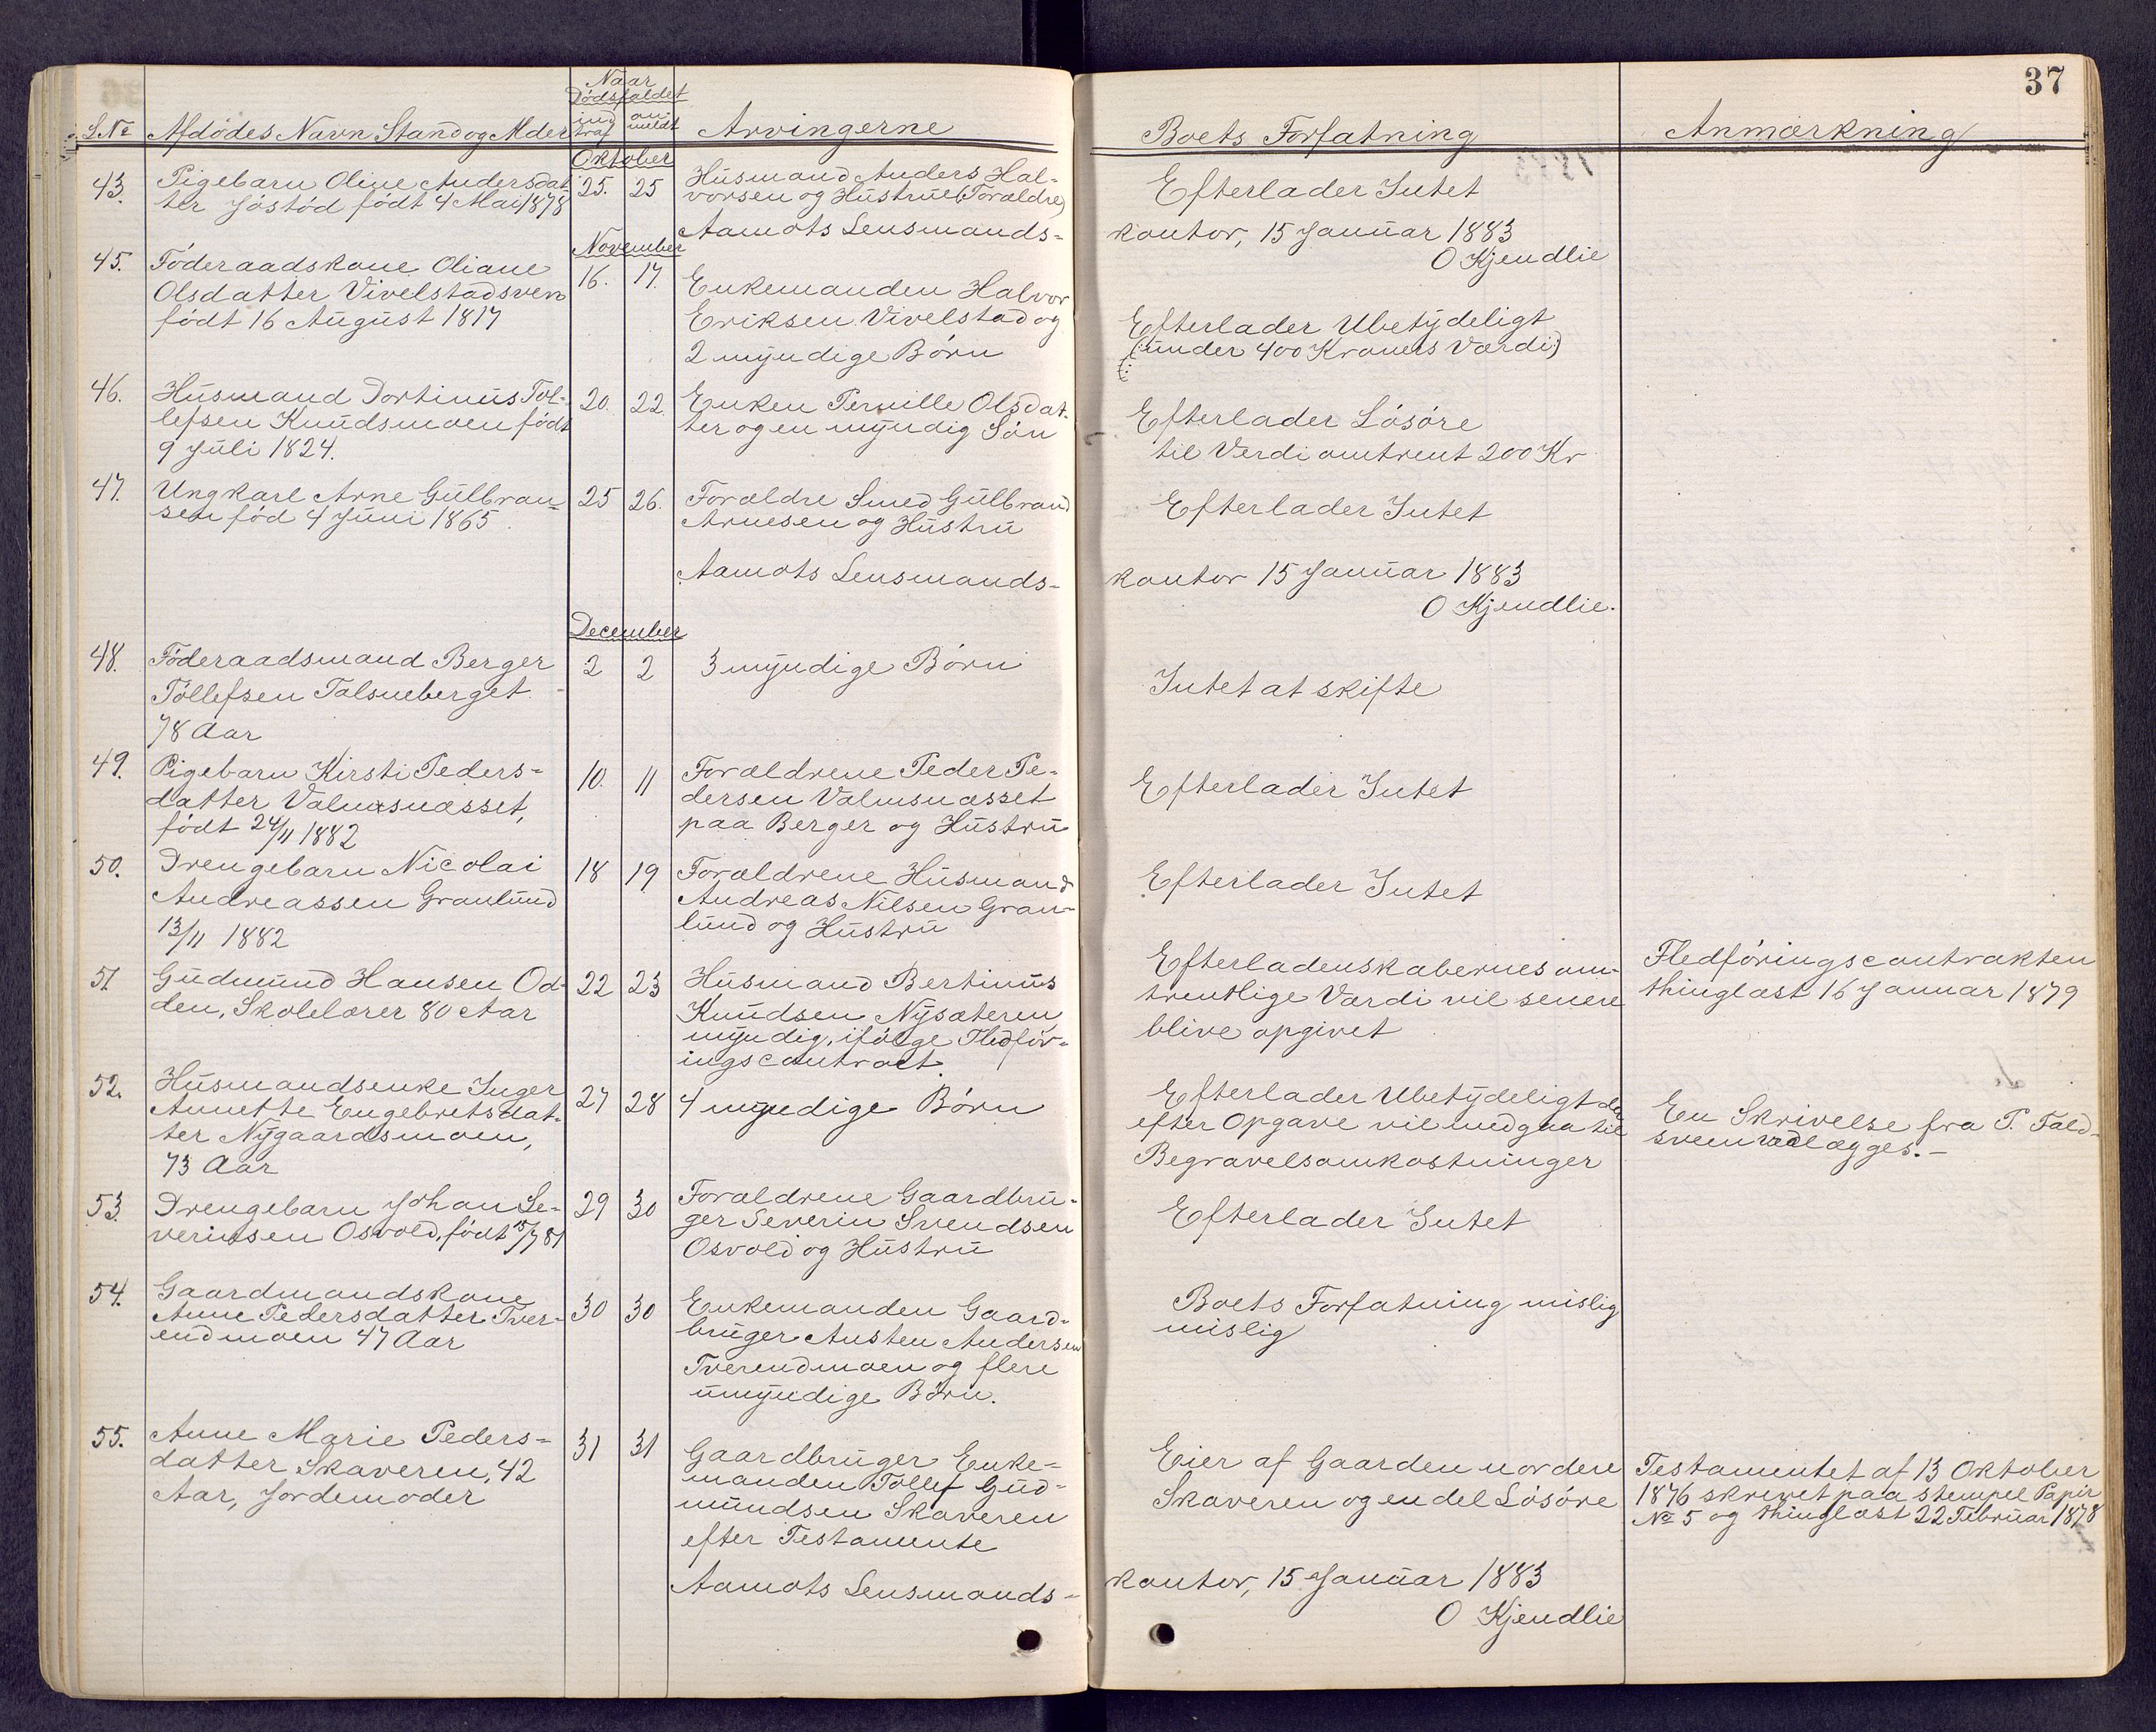 37
Naar
Dødsfaldet
L.No Afdødes Navn Stand og Alder indtraf anmeldt Arvingerne Boets Forfatning Anmærkning
Oktober
43. Pigebarn Oline Andersdat- 25. 25 Husmand Anders Hal- Efterlader Intet
ter født 4 Mai 1878 vorsen og Hustru (Forældre)
Aamots Lensmands- kontor, 15 Januar 1883
O Kjendlie
November
45. Føderaadskone Oliane 16. 17. Enkemanden Halvor Efterlader Ubetydeligt
Olsdatter Vivelstadsven Eriksen Vivelstad og (under 400 Kroners Værdi)
født 16 August 1817 2 myndige Børn
46. Husmand Dortinus Tol- 20. 22. Enken Pernille Olsdat- Efterlader Løsøre
lefsen Knudsmoen født ter og en myndig Søn til Verdi omtrent 200 Kr
9 Juli 1824.
47. Ungkarl Arne Gulbran- 25 26. Forældre Smed Gulbrand Efterlader Intet
sen fød 4 Juni 1865. Arnesen og Hustru
Aamots Lensmands- kontor 15 Januar 1883
O Kjendlie.
December
48. Føderaadsmand Berger 2 2 3 myndige Børn Intet at skifte
Tollefsen Talsneberget.
78 Aar
49. Pigebarn Kirsti Peders- 10. 11 Forældrene Peder Pe- Efterlader Intet
datter Valmsnæsset, dersen Valmsnæsset
født 24/11 1882 paa Berger og Hustru
50. Drengebarn Nicolai 18 19 Forældrene Husmand Efterlader Intet
Andreassen Granlund Andreas Nilsen Gran-
13/11 1882 lund og Hustru
51 Gudmund Hansen Od- 22 23 Husmand Bertinus Efterladenskabernes om- Fledføringscontrakten
den, Skolelærer 80 Aar Knudsen Nysæteren trentlige Værdi vil senere thinglæst 16 Januar 1879
myndig, ifølge Fledfør- blive opgivet
ingscontract.
52. Husmandsenke Inger 27 28 4 myndige Børn Efterlader Ubetydeligt der En Skrivelse fra P. Fald-
Annette Engebretsdat- efter Opgave vil medgaa til sveen vedlægges. -
ter Nygaardsmoen, Begravelsomkostninger
73 Aar
53. Drengebarn Johan Se- 29 30 Forældrene Gaardbru- Efterlader Intet
verinsen Osvold, født 15/7 81 ger Severin Svendsen
Osvold og Hustru
54. Gaardmandskone 30 30 Enkemanden Gaard- Boets Forfatning mislig
Anne Pedersdatter Tver- bruger Austen Andersen mislig
endmoen 47 Aar Tverendmoen og flere
umyndige Børn.
55. Anne Marie Peders- 31 31 Gaardbruger Enke- Eier af Gaarden nordere Testamentet af 13 Oktober
datter Skaveren, 42 manden Tollef Gud- Skaveren og en del Løsøre 1876 skrevet paa stempel Papir
Aar, Jordemoder mundsen Skaveren No 5 og thinglæst 22 Februar 1878
efter Testamente
Aamots Lensmands- kontor, 15 Januar 1883
O Kjendlie